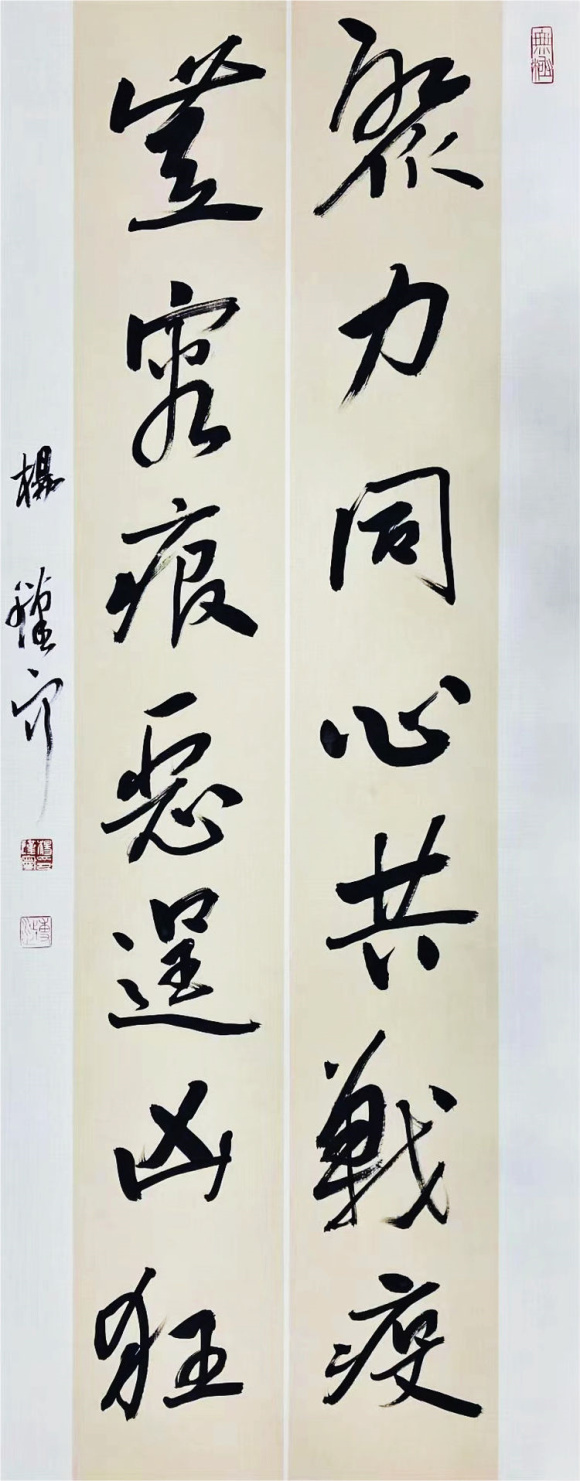 聚力同心共戰疫
豈容痕惡逞凶狂
楊